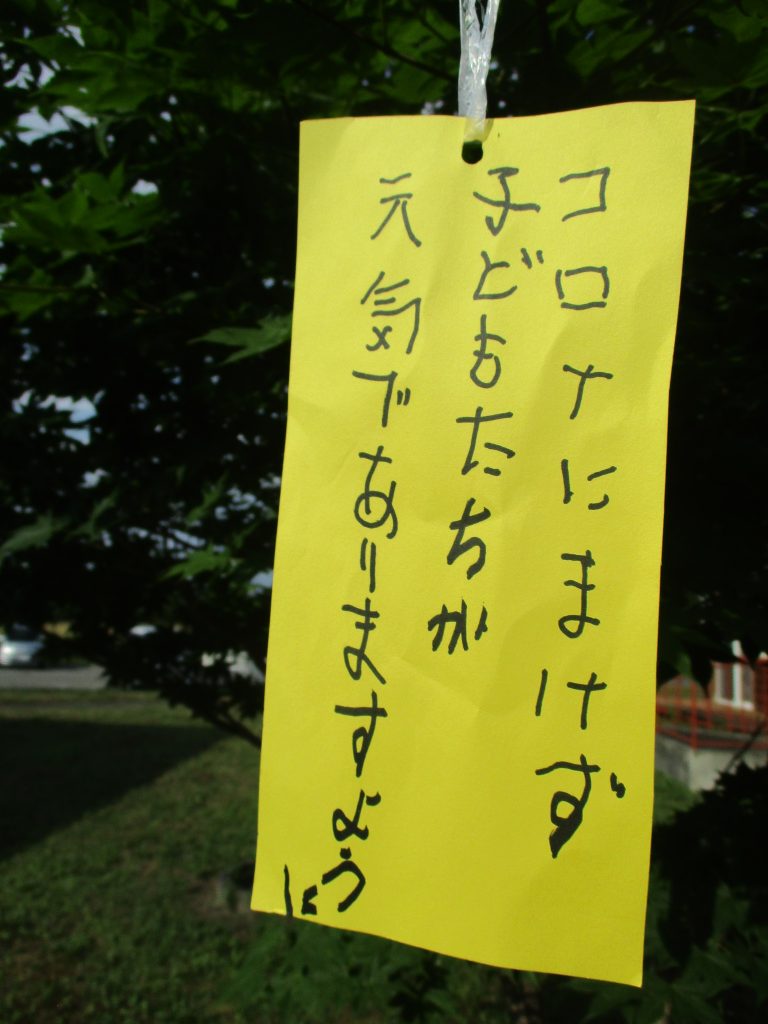 コロナにまけず
子どもたちが
元気でありますように